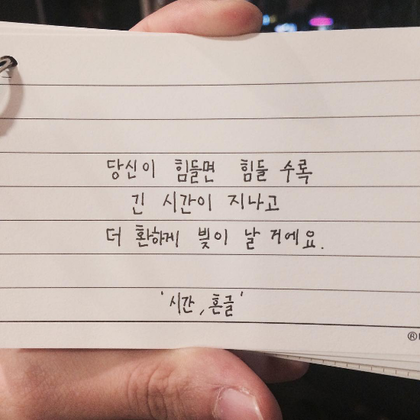 당신이 힘들면 힘들 수록
긴 시간이 지나고
더 환하게 빛이 날 거에요.
'시간, 흔글'